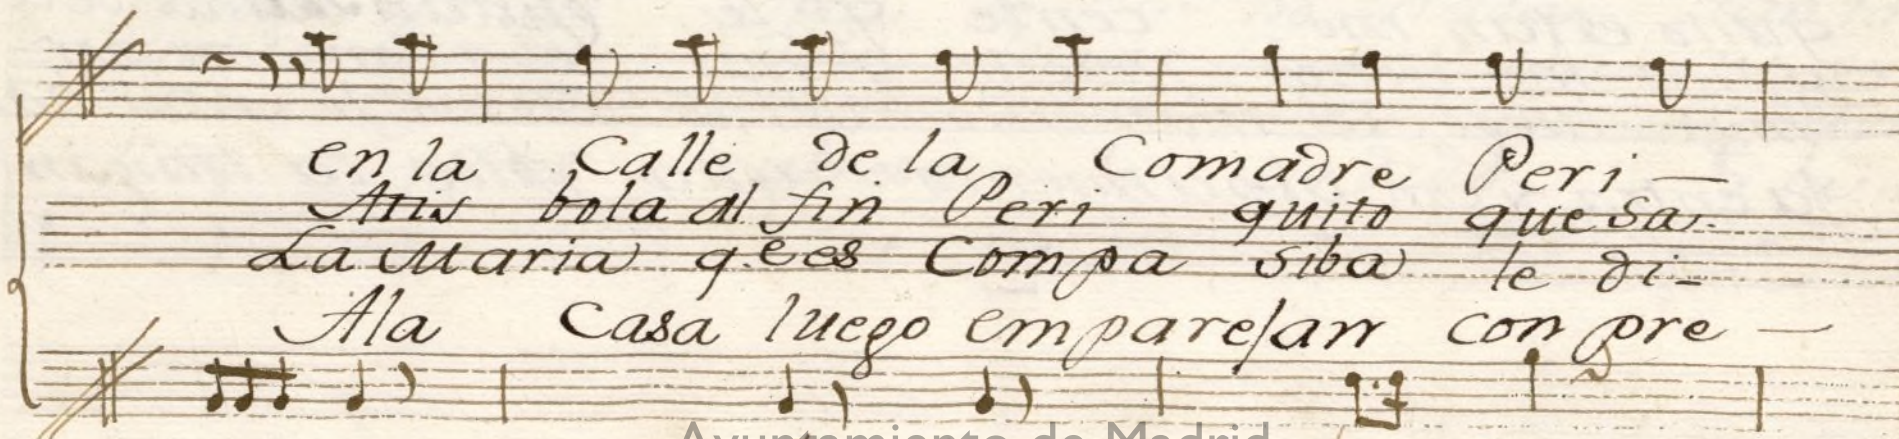 en la Calle de la Comadre Peri—
Atis bola al fin Peri quito que sa-
La Maria q.e es Compa siba le di-
Ala Casa luego emparejan con pre—
Ayuntamiento de Madrid